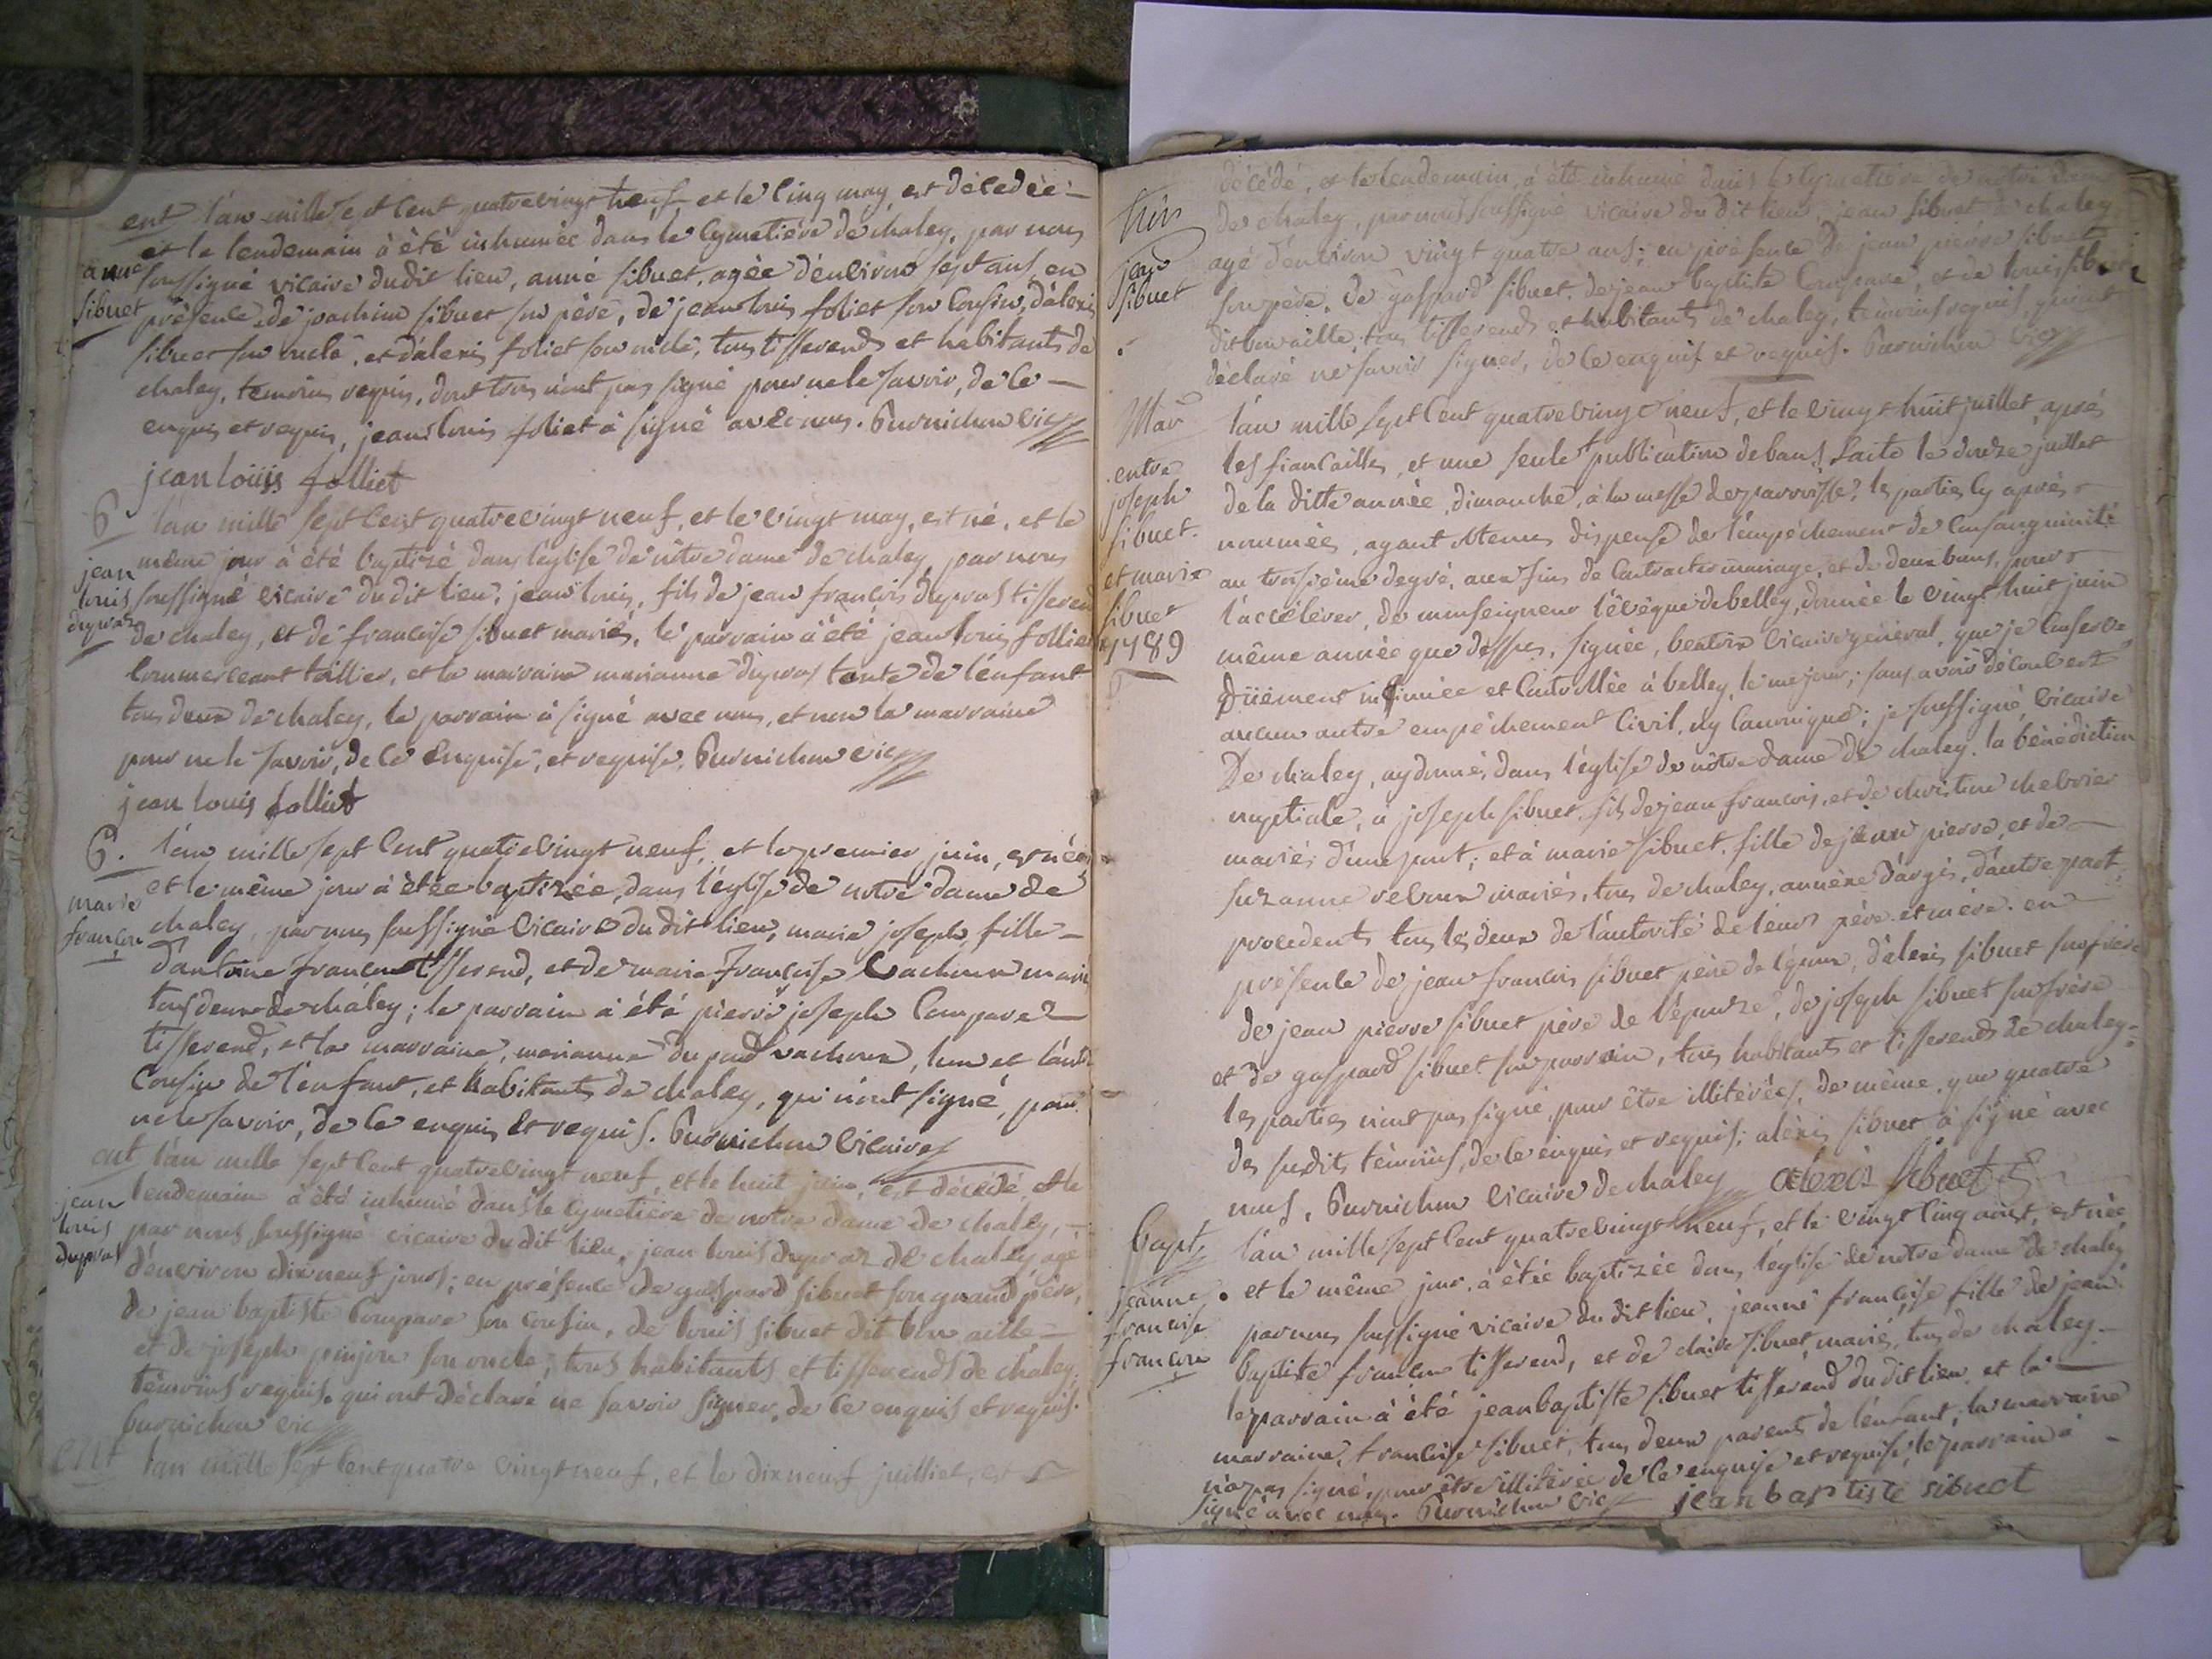 ent l'an mille sept cent quatrevingt neuf et le cinq may, est décedée
et le lendemain à été inhumée dans le cymetiére de chaley, par nous
anne
sibuet
soussigné vicaire dudit lieu, anne sibuet, agée d'environ sept ans, en
présence de joachim sibuet son père, de jean louis foliet son cousin, d'alexis
sibuet son oncle, et d'alexis foliet son oncle, tous tisserends et habitants de
chaley, temoins requis, dont trois n'ont pas signé pour ne le savoir, de ce
enquis et requis, jean louis foliet à signé avec nous. Burnichon vic
jean louis folliet
B l'an mille sept cent quatrevingt neuf, et le vingt may, est né, et le
jean
louis
dupraz
même jour à été baptizé dans l'église de nôtre dame de chaley, par nous
soussigné vicaire du dit lieu, jean louis, fils de jean françois dupras tisserend
de chaley, et de françoise sibuet mariés, le parrain à été jean louis follier
commerceant toillier, et la marraine marianne dupras tante de l'enfant
tous deux de chaley, le parrain à signé avec nous, et non la marraine
pour ne le savoir, de ce enquise, et requise. Burnichon vic
jean louis folliet
B. l'an mille sept cent quatrevingt neuf, et le premier juin, est née
marie
françon
et le même jour à étée baptizée, dans l'église de notre dame de
chaley, par nous soussigné vicaire du dit lieu, marie joseph, fille
d'antoine françon tisserend, et de marie françoise vachoux mariés
tous deux de chaley; le parrain à été pierre joseph compare
tisserend, et la marraine, marianne du pras vachoux, l'un et l'autre
cousin de l'enfant, et habitants de chaley, qui n'ont signé, pour
ne le savoir, de ce enquis et requis. Burnichon vicaire
ent l'an mille sept cent quatrevingt neuf, et le huit juin, est décédé, et le
jean
louis
dupras
lendemain à été inhumé dans le cymetiére de notre dame de chaley,
par nous soussigné vicaire du dit lieu, jean louis dupraz de chaley agé
d'environ dix neuf jours; en présence de gaspard sibuet son grand père,
de jean baptiste compare son cousin, de louis sibuet dit bon aille
et de joseph pinjon son oncle, tous habitants et tisserends de chaley,
témoins requis. qui ont déclaré ne savoir signer, de ce enquis et requis.
burnichon vic
ent l'an mille sept cent quatre vingt neuf, et le dix neuf juilliet, est
décédé, et le lendemain, à été inhumé dans le cymetiére de notre dame
jean
sibuet
de chaley, par nous soussigné vicaire du dit lieu, jean sibuet de chaley
agé d'environ vingt quatre ans; en présence de jean pierre sibuet
son père, de gaspard sibuet, de jean baptiste compare, et de louis sibuet
dit bon aille, tous tisserends et habitants de chaley, temoins requis, qui ont
déclaré ne savoir signer, de ce enquis et requis. Burnichon vic
Mar
entre
joseph
sibuet.
et marie
sibuet
1789
l'an mille sept cent quatrevingt neuf, et le vingt huit juillet, après
les fiancailles, et une seule publication de bans, faite le douze juillet
de la ditte année, dimanche, à la messe de parroisse, les parties cy après
nommées, ayant obtenus dispense de l'empéchement de consanguinité
au troisième degré, aux fins de contracter mariage, et de deux bans, pour
l'accélérer, de monseigneur l'évêque de belley, donnée le vingt huit juin
même année que dessus, signée, vicaire général, que je conserve
Düement insinuée et controllée à belley, le me jour; sans avoir découvert
aucun autre empéchement civil, ny canonique; je soussigné, vicaire
De chaley, ay donné, dans l'église de nôtre dame de chaley. la bénédiction
nuptiale, à joseph sibuet, fils de jean françois, et de christine chevrier
mariés d'une part; et à marie sibuet. fille de jean pierre, et de
suzanne mariés, tous de chaley, annéxe d'argis, d'autre part,
procedents tous les deux de l'autorité de leurs père et mère. en
présence de jean françois sibuet père de l'époux, d'alexis sibuet son frère
de jean pierre sibuet père de l'épouze, de joseph sibuet son frère
et de gaspard sibuet son parrain, tous habitants et tisserends de chaley.
les parties n'ont pas signé, pour être illitérées, de même que quatre
des susdits témoins, de ce enquis et requis; aléxis sibuet à signé avec
nous, Burnichon vicaire de chaley alexis sibuet
Bapt
jeanne
francoise
françon
l'an mille sept cent quatrevingt neuf, et le vingt cinq aoust, est née
et le même jour, à étée baptizée dans l'église de notre dame de chaley
par nous soussigné vicaire du dit lieu, jeanne françoise fille de jean
baptiste françon tisserend, et de claire sibuet mariés, tous de chaley
le parrain à été jean baptiste sibuet tisserend du dit lieu, et la
marraine, francoise sibuet, tous deux parents de l'enfant; la marraine
n'a pas signé, pour être illitérée de ce enquise et requise, le parrain à
signé avec nous. Burnichon vic jean baptiste sibuet